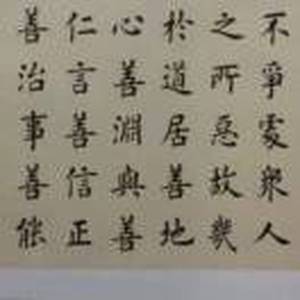 不爭處眾人
之所惡故幾
於道居善地
心善淵與善
仁言善信正
善治事善能